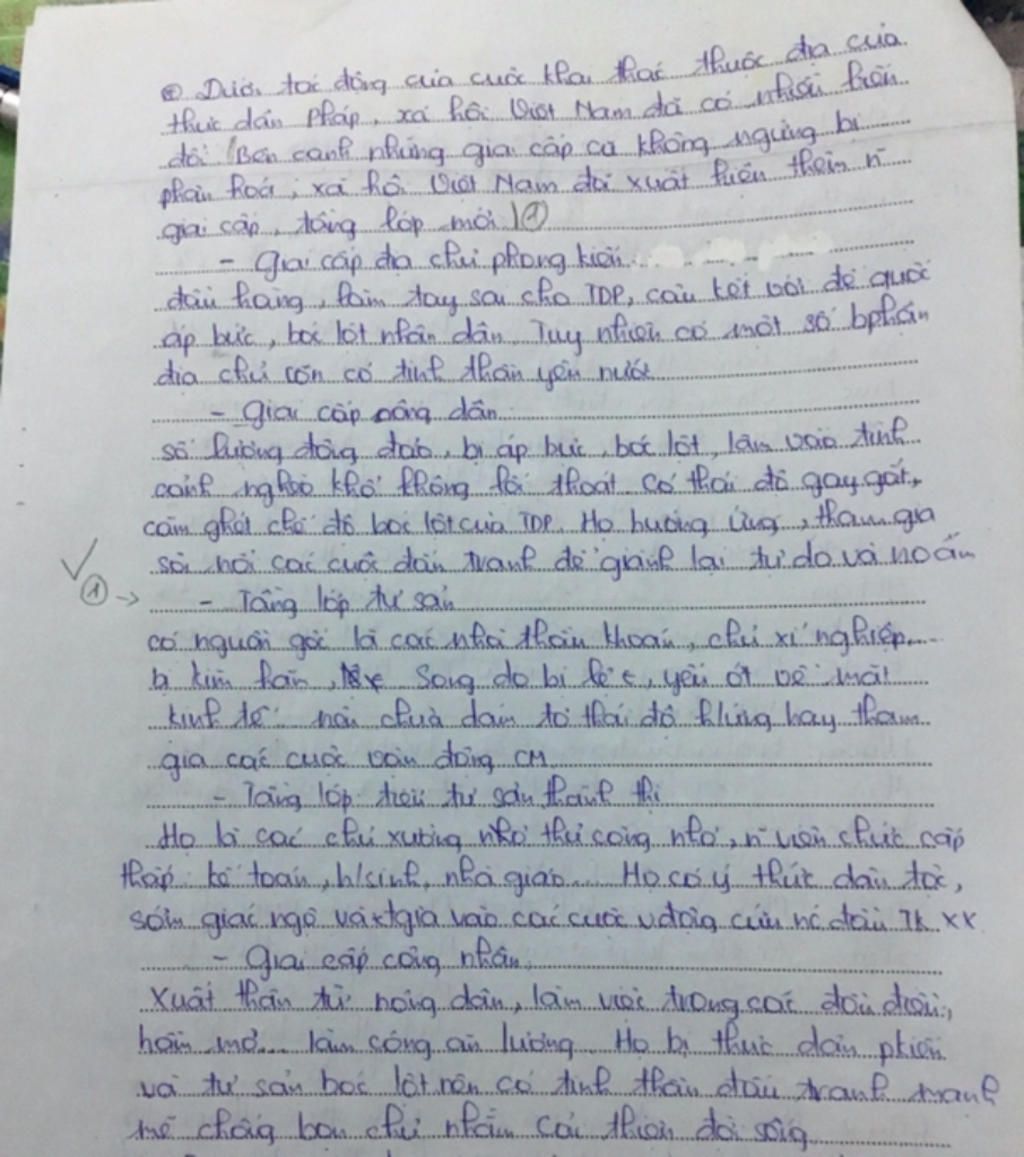 ⊕ Dưới tác động của cuộc khai thác thuộc địa của
thực dân Pháp, xã hội Việt Nam đã có nhiều biến
đổi. Bên cạnh những giai cấp cũ không ngừng bị
phân hoá, xã hội Việt Nam đã xuất hiện thêm n~
giai cấp, tầng lớp mới ①
- Giai cấp địa chủ phong kiến
đầu hàng, làm tay sai cho TDP, câu kết với đế quốc
áp bức, bóc lột nhân dân. Tuy nhiên có một số bphận
địa chủ còn có tinh thần yêu nước
- Giai cấp nông dân
số lượng đông đảo, bị áp bức, bóc lột, lâm vào tình
cảnh nghèo khổ không lối thoát. Có thái độ gay gắt,
căm ghét chế độ bóc lột của TDP. Họ hưởng ứng, tham gia
sôi nổi các cuộc đấu tranh để giành lại tự do và no ấm
① → - Tầng lớp tư sản
có nguồn gốc là các nhà thầu khoán, chủ xí nghiệp...
bị kìm hãm, Song do bị lệ t, yếu ớt về mặt
kinh tế nên chưa dám tỏ thái độ hưởng hay tham
gia các cuộc vận động CM
- Tầng lớp tiểu tư sản thành thị
Họ là các chủ xưởng nhỏ thủ công nhỏ, n~ viên chức cấp
thấp kế toán, h/sinh, nhà giáo... Họ có ý thức dân tộc,
sớm giác ngộ và tgia vào các cuộc vđộng cứu nc đầu TK XX
- Giai cấp công nhân
Xuất thân từ nông dân, làm việc trong các đồn điền,
hầm mỏ... làm công ăn lương. Họ bị thực dân pkiến
và tư sản bóc lột nên có tinh thần đấu tranh mạnh
mẽ chống bọn chủ nhằm cải thiện đời sống